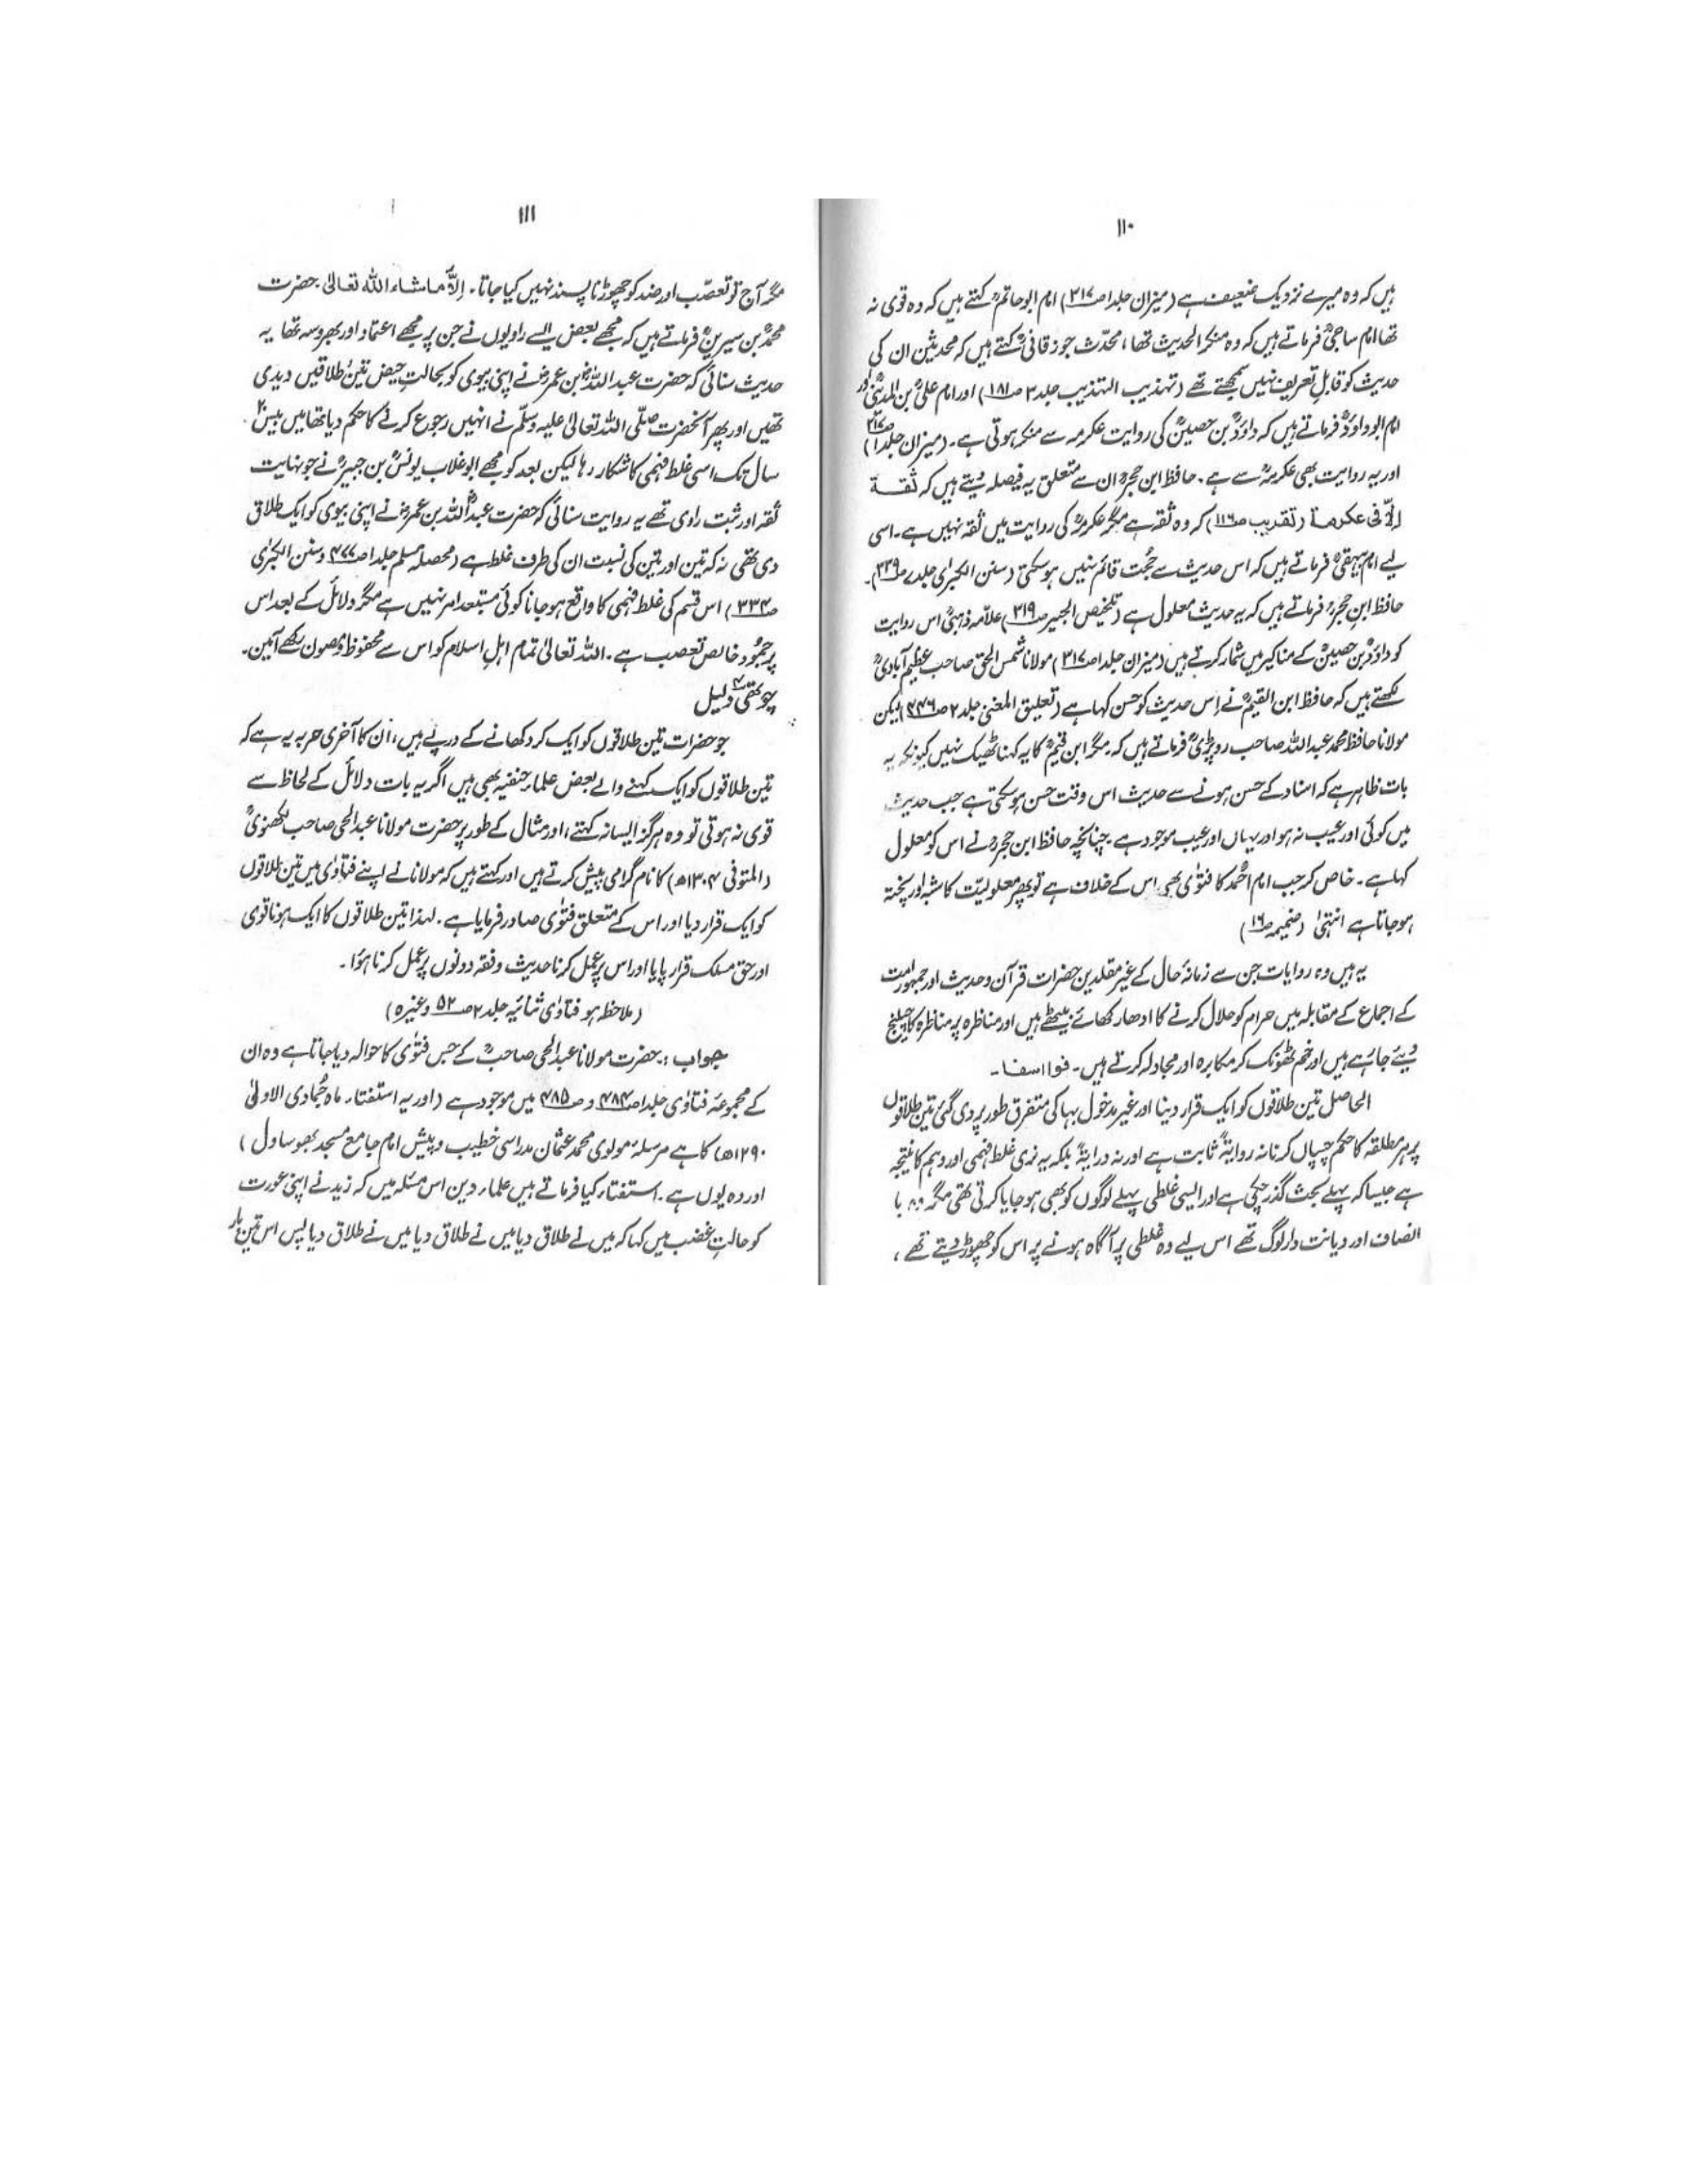 ۱۱۰
ہیں کہ وہ میرے نزدیک ضعیف ہے (میزان جلد۱ ص۳۱۷) امام ابو حاتمؒ کہتے ہیں کہ وہ قوی نہ
تھا امام ساجیؒ فرماتے ہیں کہ وہ منکر الحدیث تھا، محدّث جوزقانیؒ کہتے ہیں کہ محدثین ان کی
حدیث کو قابلِ تعریف نہیں سمجھتے تھے (تہذیب التہذیب جلد ۳ ص۱۸۱) اور امام علیؒ بن المدینیؒ اور
امام ابو داؤدؒ فرماتے ہیں کہ داؤدؒ بن حصینؒ کی روایت عکرمہ سے منکر ہوتی ہے۔ (میزان جلد۱ ص۳۱۷)
اور یہ روایت بھی عکرمہؒ سے ہے۔ حافظ ابن حجرؒ ان سے متعلق یہ فیصلہ دیتے ہیں کہ ثقة
إلّا فی عکرمة (تقریب ص۱۱۶) کہ وہ ثقہ ہے مگر عکرمہؒ کی روایت میں ثقہ نہیں ہے۔ اسی
لیے امام بیہقیؒ فرماتے ہیں کہ اس حدیث سے حُجّت قائم نہیں ہو سکتی (سنن الکبرٰی جلد۷ ص۳۳۹)۔
حافظ ابنِ حجرؒ فرماتے ہیں کہ یہ حدیث معلول ہے (تلخیص الجبیر ص۳۱۹) علامہ ذہبیؒ اس روایت
کو داؤدؒ بن حصینؒ کے مناکیر میں شمار کرتے ہیں (میزان جلد۱ ص۳۱۷) مولانا شمس الحق صاحب عظیم آبادیؒ
لکھتے ہیں کہ حافظ ابن القیمؒ نے اِس حدیث کو حسن کہا ہے (تعلیق المغنی جلد۲ ص۴۴۶) لیکن
مولانا حافظ محمد عبداللہ صاحب روپڑیؒ فرماتے ہیں کہ۔ مگر ابن قیمؒ کا یہ کہنا ٹھیک نہیں کیونکہ یہ
بات ظاہر ہے کہ اسناد کے حسن ہونے سے حدیث اس وقت حسن ہو سکتی ہے جب حدیث
میں کوئی اور عیب نہ ہو اور یہاں اور عیب موجود ہے۔ چنانچہ حافظ ابن حجرؒ نے اس کو معلول
کہا ہے۔ خاص کر جب امام احمدؒ کا فتوٰی بھی اس کے خلاف ہے تو پھر معلولیّت کا شبہ اور پختہ
ہو جاتا ہے انتہیٰ (ضمیمہ ص۱۶)
یہ ہیں وہ روایات جن سے زمانۂ حال کے غیر مقلدین حضرات قرآن و حدیث اور جمہور امت
کے اجماع کے مقابلہ میں حرام کو حلال کرنے کا ادھار کھائے بیٹھے ہیں اور مناظرہ پر مناظرہ کا چیلنج
دیئے جا رہے ہیں اور خم ٹھونک کر مکابرہ اور مجادلہ کرتے ہیں۔ فوا اسفا۔
الحاصل تین طلاقوں کو ایک قرار دینا اور غیر مدخول بہا کی متفرق طور پر دی گئی تین طلاقوں
پر ہر مطلقہ کا حکم چسپاں کرنا نہ روایۃً ثابت ہے اور نہ درایۃً بلکہ یہ نری غلط فہمی اور وہم کا نتیجہ
ہے جیسا کہ پہلے بحث گذر چکی ہے اور ایسی غلطی پہلے لوگوں کو بھی ہو جایا کرتی تھی مگر وہ با
انصاف اور دیانت دار لوگ تھے اس لیے وہ غلطی پر آگاہ ہونے پر اس کو چھوڑ دیتے تھے،
۱۱۱
مگر آج تو تعصّب اور ضد کو چھوڑنا پسند نہیں کیا جاتا۔ اِلاّ ماشاء اللہ تعالیٰ۔ حضرت
محمدؒ بن سیرینؒ فرماتے ہیں کہ مجھے بعض ایسے راویوں نے جن پر مجھے اعتماد اور بھروسہ تھا یہ
حدیث سنائی کہ حضرت عبداللہؓ بن عمرؓ نے اپنی بیوی کو بحالتِ حیض تین طلاقیں دیدی
تھیں اور پھر آنحضرت صلّی اللہ تعالیٰ علیہ وسلّم نے انہیں رجوع کرنے کا حکم دیا تھا میں بیس۲۰
سال تک اسی غلط فہمی کا شکار رہا لیکن بعد کو مجھے ابو غلاب یونسؒ بن جبیرؒ نے جو نہایت
ثقہ اور ثبت راوی تھے یہ روایت سنائی کہ حضرت عبداللہؓ بن عمرؓ نے اپنی بیوی کو ایک طلاق
دی تھی نہ کہ تین اور تین کی نسبت ان کی طرف غلط ہے (محصلہ مسلم جلد۱ ص۴۷۷ و سنن الکبرٰی
ص۳۳۴) اس قسم کی غلط فہمی کا واقع ہو جانا کوئی مستبعد امر نہیں ہے مگر دلائل کے بعد اس
پر جمُود خالص تعصب ہے۔ اللہ تعالیٰ تمام اہلِ اسلام کو اس سے محفوظ و مصون رکھے آمین۔
چوتھی۴ دلیل
جو حضرات تین طلاقوں کو ایک کر دکھانے کے درپے ہیں، ان کا آخری حربہ یہ ہے کہ
تین طلاقوں کو ایک کہنے والے بعض علماء حنفیہ بھی ہیں اگر یہ بات دلائل کے لحاظ سے
قوی نہ ہوتی تو وہ ہرگز ایسا نہ کہتے، اور مثال کے طور پر حضرت مولانا عبدالحی صاحب لکھنویؒ
(المتوفی ۱۳۰۴ھ) کا نام گرامی پیش کرتے ہیں اور کہتے ہیں کہ مولانا نے اپنے فتاوٰی میں تین طلاقوں
کو ایک قرار دیا اور اس کے متعلق فتوٰی صادر فرمایا ہے۔ لہذا تین طلاقوں کا ایک ہونا قوی
اور حق مسلک قرار پایا اور اس پر عمل کرنا حدیث و فقہ دونوں پر عمل کرنا ہؤا۔
(ملاحظہ ہو فتاوٰی ثنائیہ جلد ۲ ص۵۲ وغیرہ)
جواب:۔ حضرت مولانا عبدالحی صاحبؒ کے جس فتوٰی کا حوالہ دیا جاتا ہے وہ ان
کے مجموعۂ فتاوٰی جلد۱ ص۴۸۴ و ص۴۸۵ میں موجود ہے (اور یہ استفتاء ماہ جُمادی الاولیٰ
۱۲۹۰ھ کا ہے مرسلہ مولوی محمد عثمان مدراسی خطیب و پیش امام جامع مسجد بھوساول)
اور وہ یوں ہے۔ استفتاء کیا فرماتے ہیں علماء دین اس مسئلہ میں کہ زید نے اپنی عورت
کو حالتِ غضب میں کہا کہ میں نے طلاق دیا میں نے طلاق دیا میں نے طلاق دیا پس اس تین بار